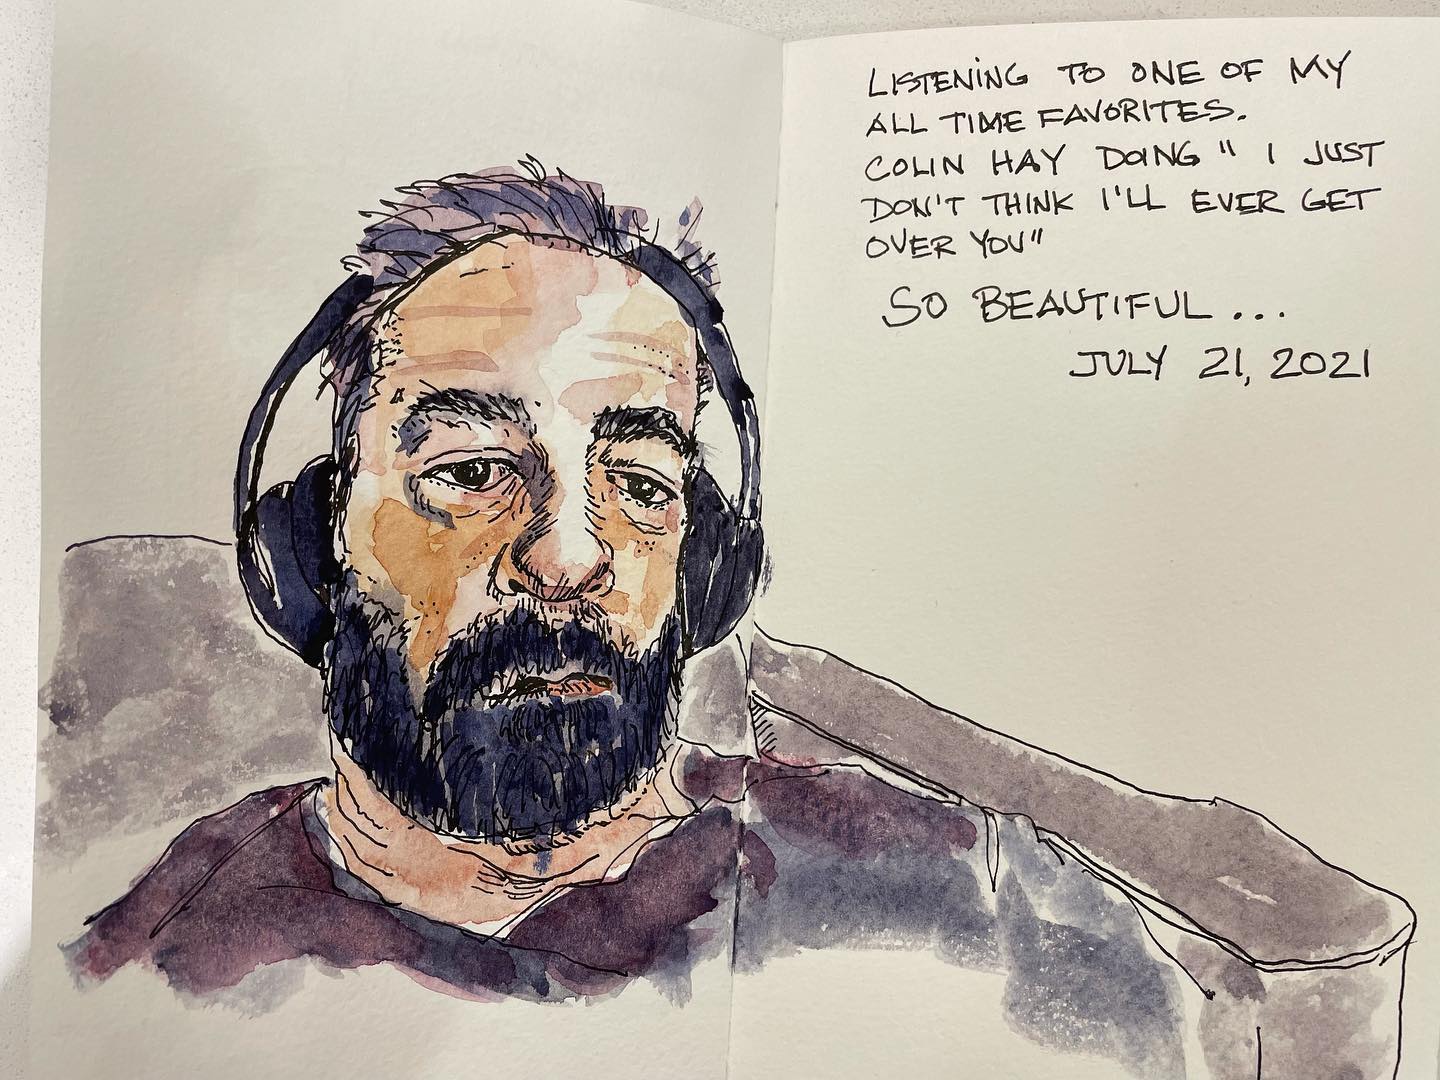 LISTENING TO ONE OF MY
ALL TIME FAVORITES.
COLIN HAY DOING " I JUST
DON'T THINK I'LL EVER GET
OVER YOU"
SO BEAUTIFUL...
JULY 21, 2021